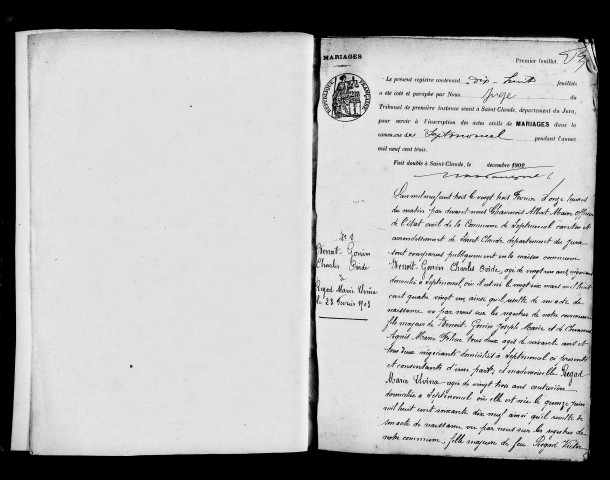 MARIAGES
Premier feuillet.
RÉPUBLIQUE FRANÇAISE
Le présent registre contenant dix-huit feuillets
a été coté et paraphé par Nous Juge du
Tribunal de première instance séant à Saint-Claude, département du Jura,
pour servir à l'inscription des actes civils de MARIAGES dans la
commune de Septmoncel pendant l'année
mil neuf cent trois.
Fait double à Saint-Claude, le décembre 1902
No 1
Benoit-Gonin
Charles
&
Regad Marie Elvina
le 23 Février 1903
L'an mil neuf cent trois le vingt trois Février à onze heures
du matin par devant nous Albert Maire officier
de l'état civil de la Commune de Septmoncel canton et
arrondissement de Saint Claude département du Jura
sont comparus publiquement en la maison commune
Benoit-Gonin Charles agé de vingt un ans, négociant
domicilié à Septmoncel, où il est né le vingt six mars mil huit
cent quatre vingt un ainsi qu'il résulte de son acte de
naissance vu par nous sur les registres de notre commune
fils majeur de Benoit-Gonin Joseph Marie et de
Marie tous deux agés de soixante ans et
tous deux négociants domiciliés à Septmoncel ici présents
et consentants d'une part; et mademoiselle Regad
Marie Elvina agée de vingt trois ans couturière
domiciliée à Septmoncel où elle est née le quinze juin
mil huit cent soixante dix neuf ainsi qu'il résulte de
son acte de naissance vu par nous sur les registres de
notre commune, fille majeure de feu Regad Victor